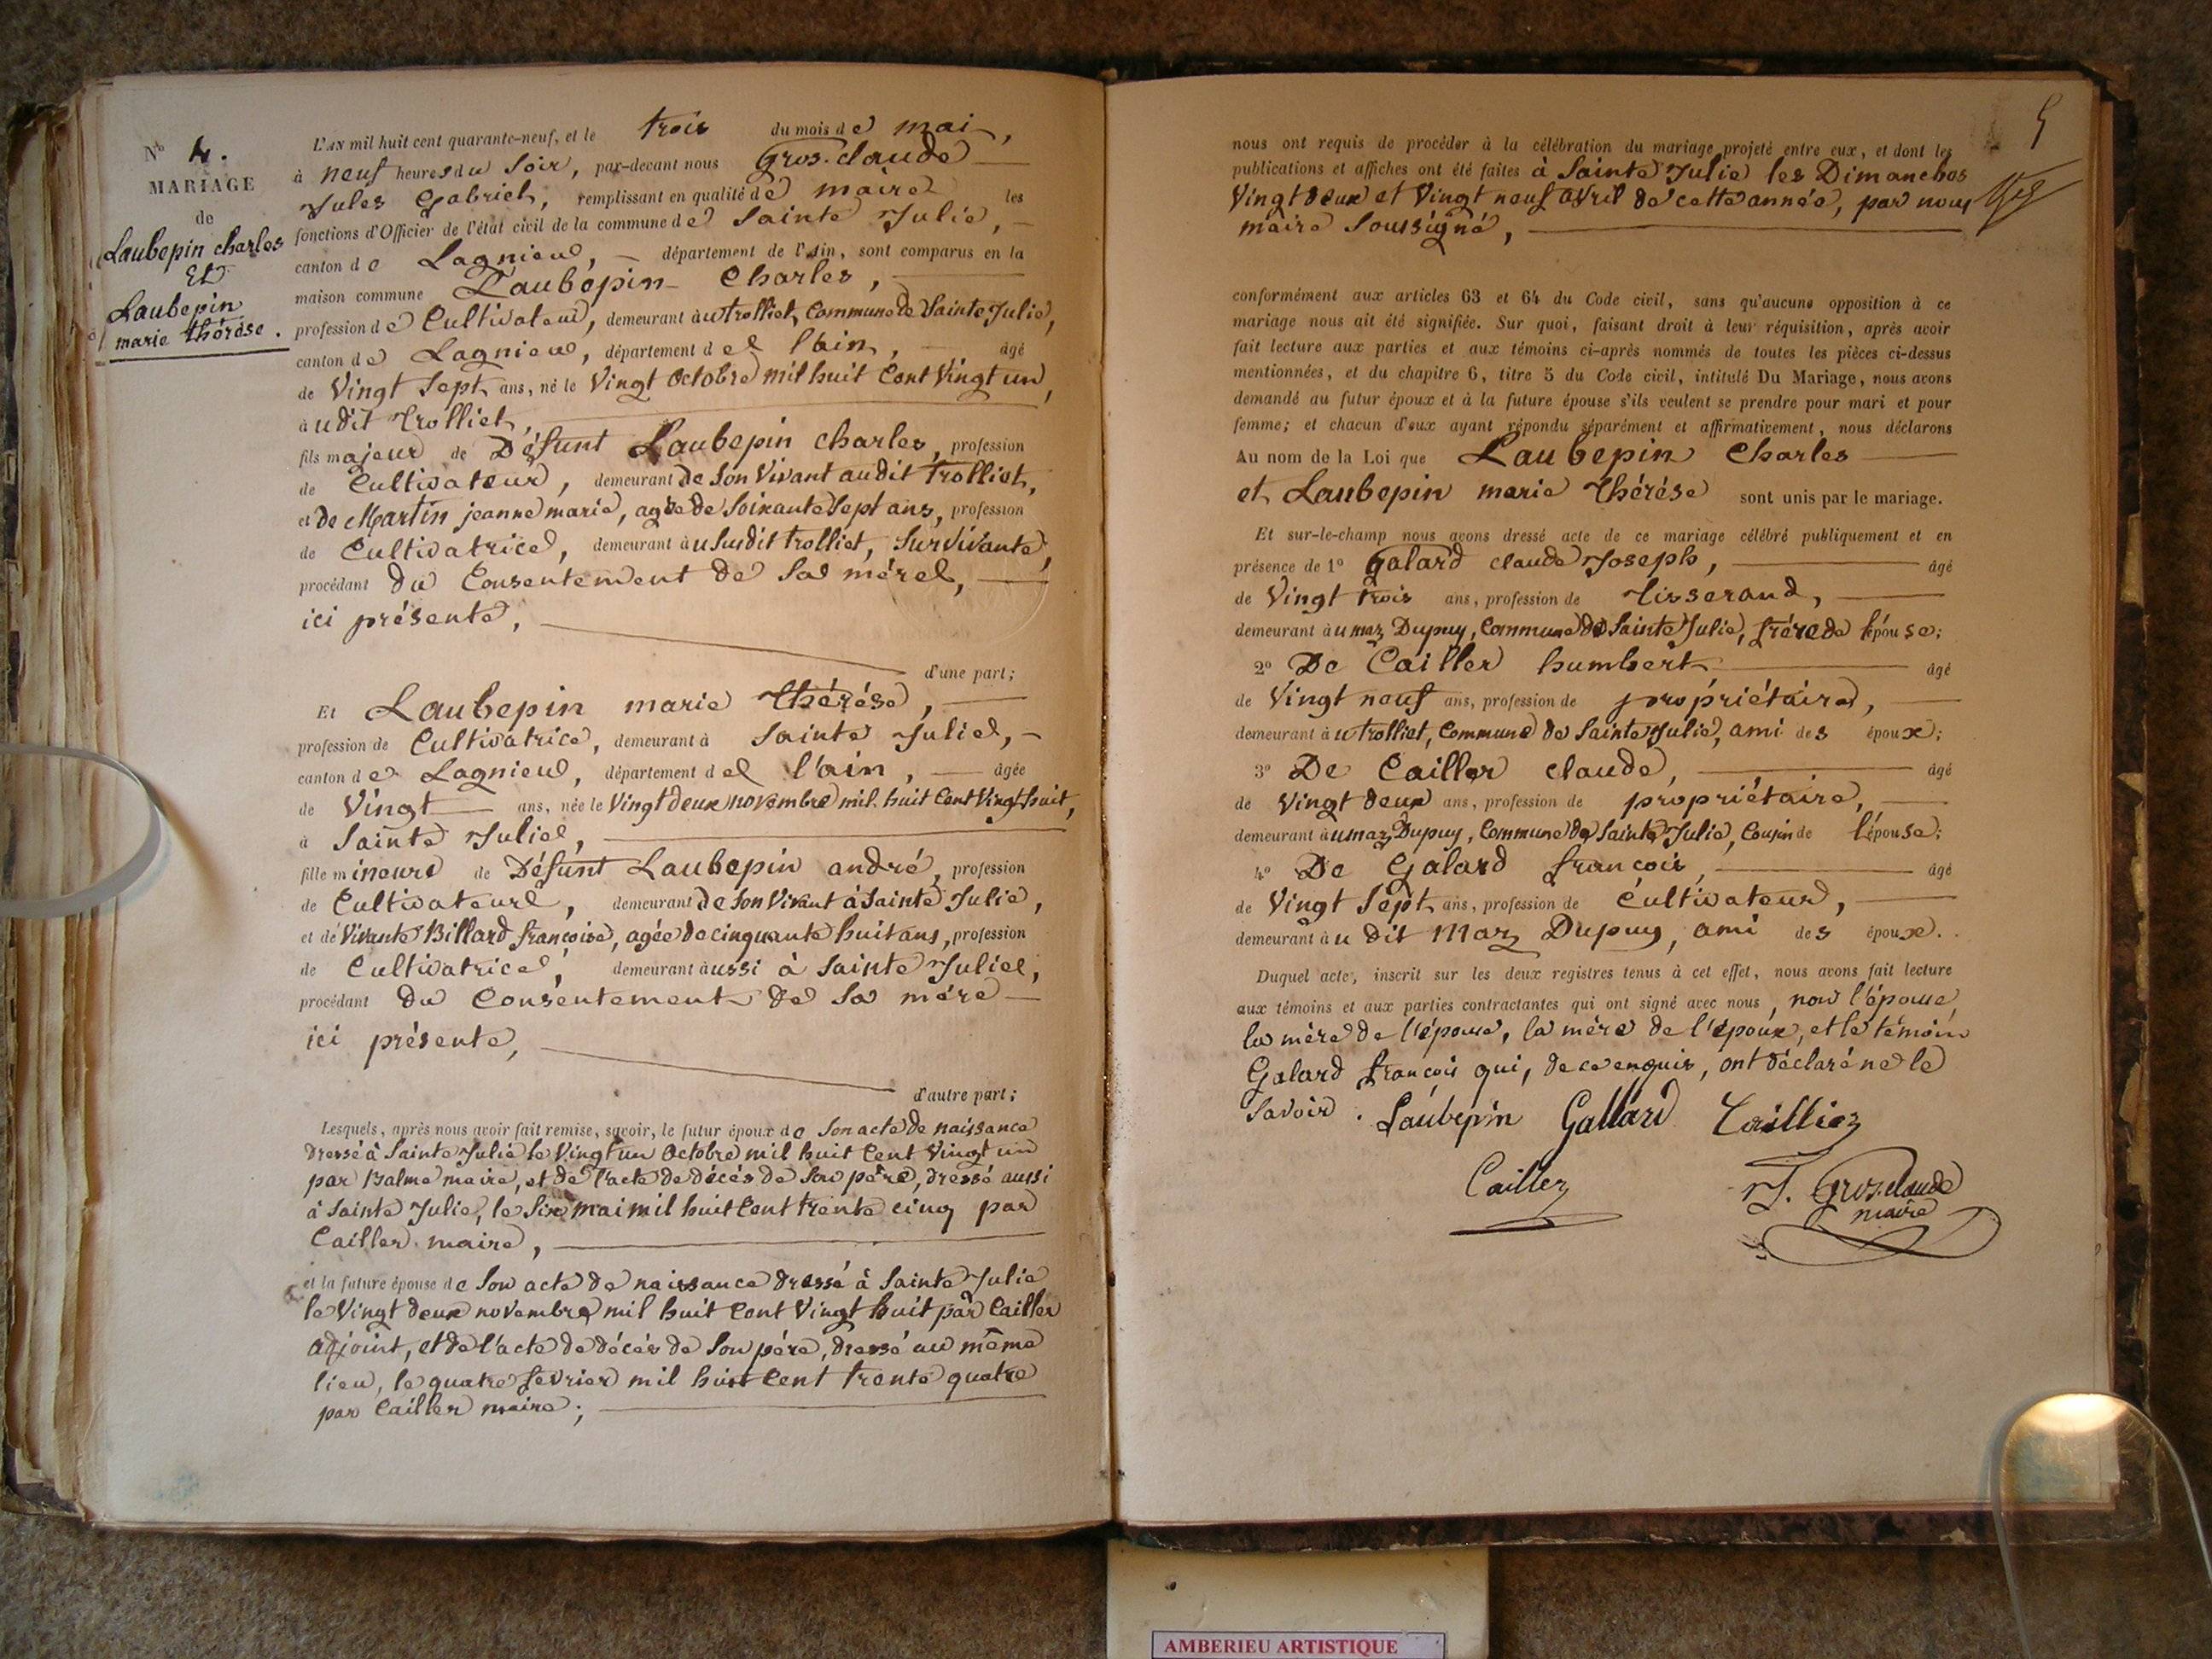 N° 4.
MARIAGE
de
Laubepin charles
Et
Laubepin
marie thérèse.
L'AN mil huit cent quarante-neuf, et le trois du mois de mai,
à neuf heures du soir, par-devant nous Gros-claude
Jules Gabriel, remplissant en qualité de maire les
fonctions d'Officier de l'état civil de la commune de Sainte Julie,
canton de Lagnieu, département de l'Ain, sont comparus en la
maison commune Laubepin Charles,
profession de Cultivateur, demeurant au trolliet, Commune de Sainte Julie,
canton de Lagnieu, département de l'ain, âgé
de Vingt Sept ans, né le Vingt Octobre mil huit Cent Vingt un,
audit trolliet,
fils majeur de Défunt Laubepin charles, profession
de Cultivateur, demeurant de son Vivant audit trolliet,
et de Martin jeanne marie, agée de Soixante Sept ans, profession
de Cultivatrice, demeurant au susdit trolliet, Survivante,
procédant du Consentement de Sa mère,
ici présente,
d'une part;
Et Laubepin marie thérèse,
profession de Cultivatrice, demeurant à Sainte Julie,
canton de Lagnieu, département de l'ain, âgée
de Vingt ans, née le Vingt deux novembre mil huit Cent Vingt huit,
à Sainte Julie,
fille mineure de Défunt Laubepin andré, profession
de Cultivateur, demeurant de son Vivant à Sainte Julie,
et de Vivante Billard françoise, agée de cinquante huit ans, profession
de Cultivatrice, demeurant aussi à Sainte Julie,
procédant du Consentement de Sa mère
ici présente,
d'autre part;
Lesquels, après nous avoir fait remise, savoir, le futur époux de Son acte de naissance
dressé à Sainte Julie le Vingt un Octobre mil huit Cent Vingt un
par Balme maire, et de l'acte de décès de Son père, dressé aussi
à Sainte Julie, le Six mai mil huit Cent trente cinq par
Cailler maire,
et la future épouse de Son acte de naissance dressé à Sainte Julie
le Vingt deux novembre mil huit Cent Vingt huit par Cailler
adjoint, et de l'acte de décès de Son père, dressé au même
lieu, le quatre fevrier mil huit Cent trente quatre
par Cailler maire;
5
nous ont requis de procéder à la célébration du mariage projeté entre eux, et dont les
publications et affiches ont été faites à Sainte Julie les Dimanches
Vingt deux et Vingt neuf avril de cette année, par nous
maire Soussigné,
conformément aux articles 63 et 64 du Code civil, sans qu'aucune opposition à ce
mariage nous ait été signifiée. Sur quoi, faisant droit à leur réquisition, après avoir
fait lecture aux parties et aux témoins ci-après nommés de toutes les pièces ci-dessus
mentionnées, et du chapitre 6, titre 5 du Code civil, intitulé Du Mariage, nous avons
demandé au futur époux et à la future épouse s'ils veulent se prendre pour mari et pour
femme; et chacun d'eux ayant répondu séparément et affirmativement, nous déclarons
Au nom de la Loi que Laubepin Charles
et Laubepin marie thérèse sont unis par le mariage.
Et sur-le-champ nous avons dressé acte de ce mariage célébré publiquement et en
présence de 1° Galard claude Joseph, âgé
de Vingt trois ans, profession de Tisserand,
demeurant au maz Dupuy, Commune de Sainte Julie, frère de l'épouse;
2° De Cailler humbert âgé
de Vingt neuf ans, profession de propriétaire,
demeurant au trolliet, Commune de Sainte Julie, ami des époux;
3° De Cailler claude, âgé
de Vingt deux ans, profession de propriétaire,
demeurant au maz Dupuy, Commune de Sainte Julie, Cousin de l'épouse;
4° De Galard françois, âgé
de Vingt Sept ans, profession de Cultivateur,
demeurant au dit Maz Dupuy, ami des époux.
Duquel acte, inscrit sur les deux registres tenus à cet effet, nous avons fait lecture
aux témoins et aux parties contractantes qui ont signé avec nous, non l'épouse,
la mère de l'épouse, la mère de l'époux, et le témoin
Galard françois qui, de ce enquis, ont déclaré ne le
Savoir. Laubepin Gallard Caillier
Cailler
J. Gros-claude
maire
AMBERIEU ARTISTIQUE